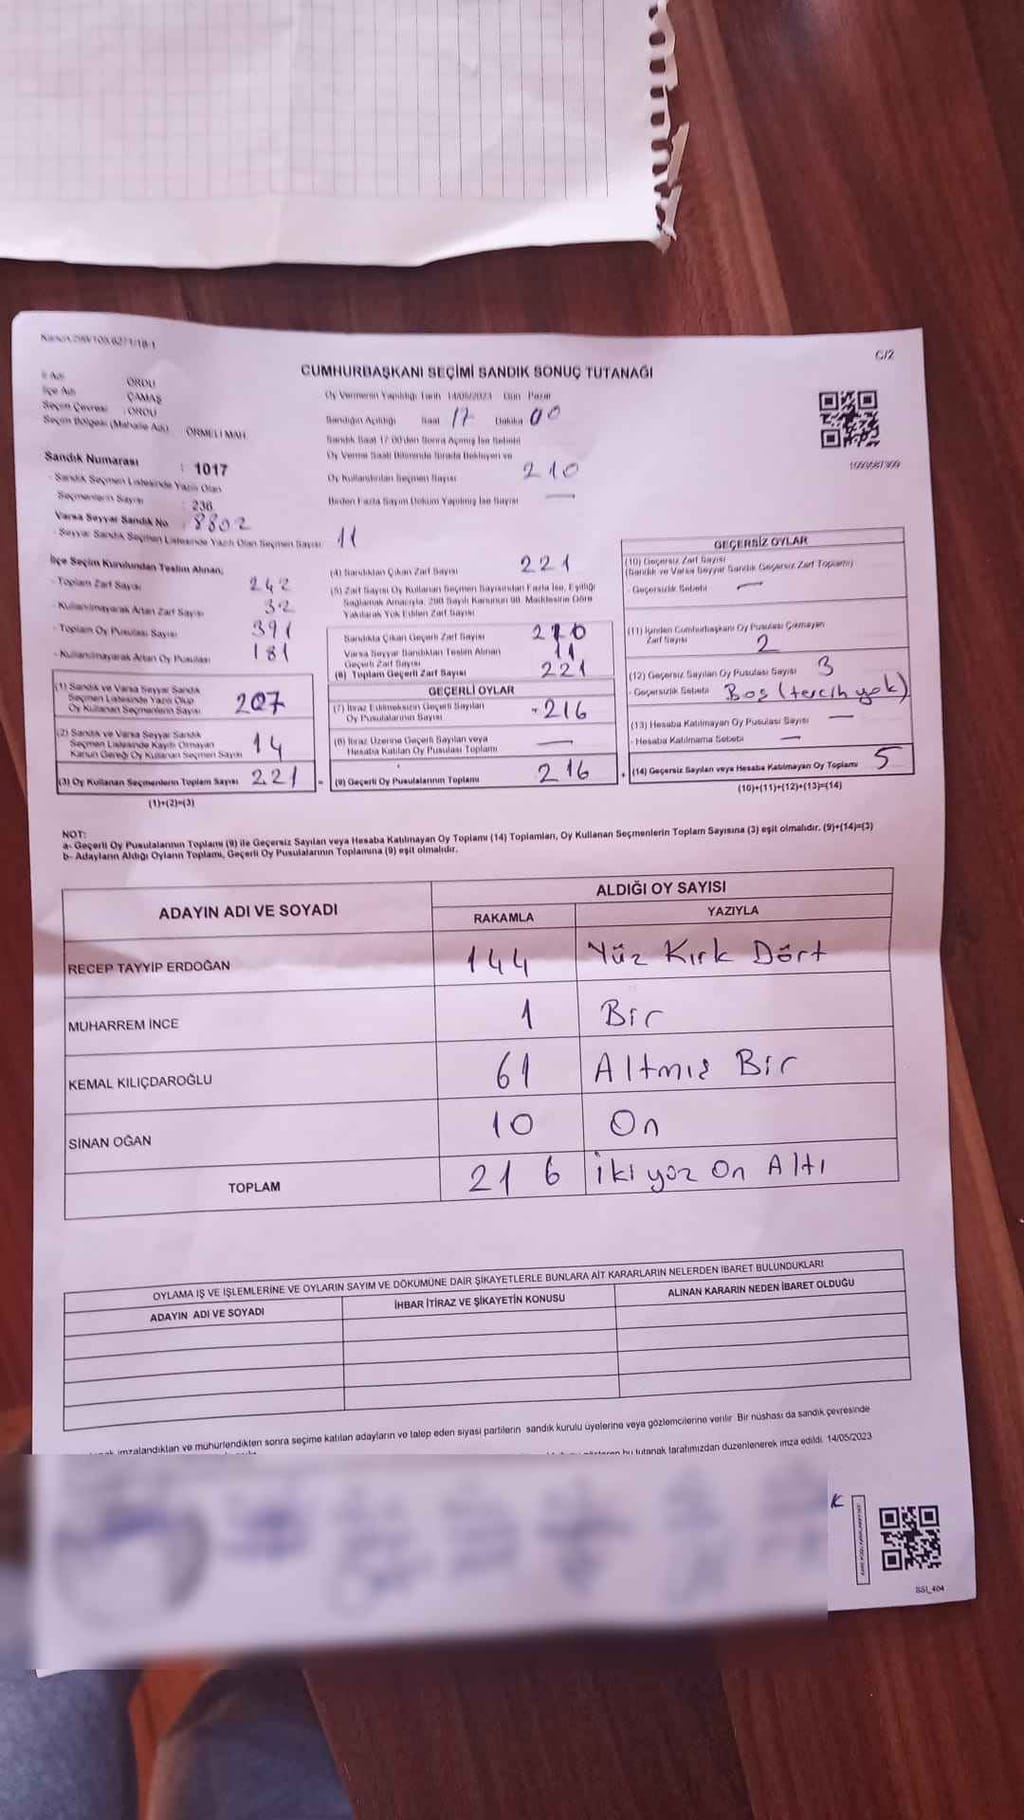 C/2
CUMHURBAŞKANI SEÇİMİ SANDIK SONUÇ TUTANAĞI
İl Adı ORDU
İlçe Adı ÇAMAŞ
Seçim Çevresi : ORDU
Seçim Bölgesi (Mahalle Adı) ÖRMELİ MAH.
Sandık Numarası : 1017
- Sandık Seçmen Listesinde Yazılı Olan
Seçmenlerin Sayısı : 236
Varsa Seyyar Sandık No : 8802
- Seyyar Sandık Seçmen Listesinde Yazılı Olan Seçmen Sayısı 11
Oy Vermenin Yapıldığı Tarih 14/05/2023 Gün Pazar
Sandığın Açıldığı Saat 17 Dakika 00
Sandık Saat 17:00'den Sonra Açılmış İse Sebebi
Oy Verme Saati Bitiminde Sırada Bekleyen ve
Oy Kullandırılan Seçmen Sayısı 210
Birden Fazla Sayım Döküm Yapılmış İse Sayısı —
İlçe Seçim Kurulundan Teslim Alınan;
- Toplam Zarf Sayısı 242
- Kullanılmayarak Artan Zarf Sayısı 32
- Toplam Oy Pusulası Sayısı 391
- Kullanılmayarak Artan Oy Pusulası 181
(1) Sandık ve Varsa Seyyar Sandık
Seçmen Listesinde Yazılı Olup
Oy Kullanan Seçmenlerin Sayısı 207
(2) Sandık ve Varsa Seyyar Sandık
Seçmen Listesinde Kayıtlı Olmayan
Kanun Gereği Oy Kullanan Seçmen Sayısı 14
(3) Oy Kullanan Seçmenlerin Toplam Sayısı 221
(1)+(2)=(3)
(4) Sandıktan Çıkan Zarf Sayısı 221
(5) Zarf Sayısı Oy Kullanan Seçmen Sayısından Fazla İse, Eşitliği
Sağlamak Amacıyla, 298 Sayılı Kanunun 98. Maddesine Göre
Yakılarak Yok Edilen Zarf Sayısı
Sandıkta Çıkan Geçerli Zarf Sayısı 210
Varsa Seyyar Sandıktan Teslim Alınan
Geçerli Zarf Sayısı 11
(6) Toplam Geçerli Zarf Sayısı 221
GEÇERLİ OYLAR
(7) İtiraz Edilmeksizin Geçerli Sayılan
Oy Pusulalarının Sayısı -216
(8) İtiraz Üzerine Geçerli Sayılan veya
Hesaba Katılan Oy Pusulası Toplamı —
(9) Geçerli Oy Pusulalarının Toplamı 216
GEÇERSİZ OYLAR
(10) Geçersiz Zarf Sayısı
(Sandık ve Varsa Seyyar Sandık Geçersiz Zarf Toplamı)
- Geçersizlik Sebebi —
(11) İçinden Cumhurbaşkanı Oy Pusulası Çıkmayan
Zarf Sayısı 2
(12) Geçersiz Sayılan Oy Pusulası Sayısı 3
- Geçersizlik Sebebi Boş (tercih yok)
(13) Hesaba Katılmayan Oy Pusulası Sayısı —
- Hesaba Katılmama Sebebi —
(14) Geçersiz Sayılan veya Hesaba Katılmayan Oy Toplamı 5
(10)+(11)+(12)+(13)=(14)
NOT:
a- Geçerli Oy Pusulalarının Toplamı (9) ile Geçersiz Sayılan veya Hesaba Katılmayan Oy Toplamı (14) Toplamları, Oy Kullanan Seçmenlerin Toplam Sayısına (3) eşit olmalıdır. (9)+(14)=(3)
b- Adayların Aldığı Oyların Toplamı, Geçerli Oy Pusulalarının Toplamına (9) eşit olmalıdır.
ADAYIN ADI VE SOYADI ALDIĞI OY SAYISI
RAKAMLA YAZIYLA
RECEP TAYYİP ERDOĞAN 144 Yüz Kırk Dört
MUHARREM İNCE 1 Bir
KEMAL KILIÇDAROĞLU 61 Altmış Bir
SİNAN OĞAN 10 On
TOPLAM 216 İkiyüz On Altı
OYLAMA İŞ VE İŞLEMLERİNE VE OYLARIN SAYIM VE DÖKÜMÜNE DAİR ŞİKAYETLERLE BUNLARA AİT KARARLARIN NELERDEN İBARET BULUNDUKLARI
ADAYIN ADI VE SOYADI İHBAR İTİRAZ VE ŞİKAYETİN KONUSU ALINAN KARARIN NEDEN İBARET OLDUĞU
imzalandıktan ve mühürlendikten sonra seçime katılan adayların ve talep eden siyasi partilerin sandık kurulu üyelerine veya gözlemcilerine verilir. Bir nüshası da sandık çevresinde
bu tutanak tarafımızdan düzenlenerek imza edildi. 14/05/2023
K
SSI_404